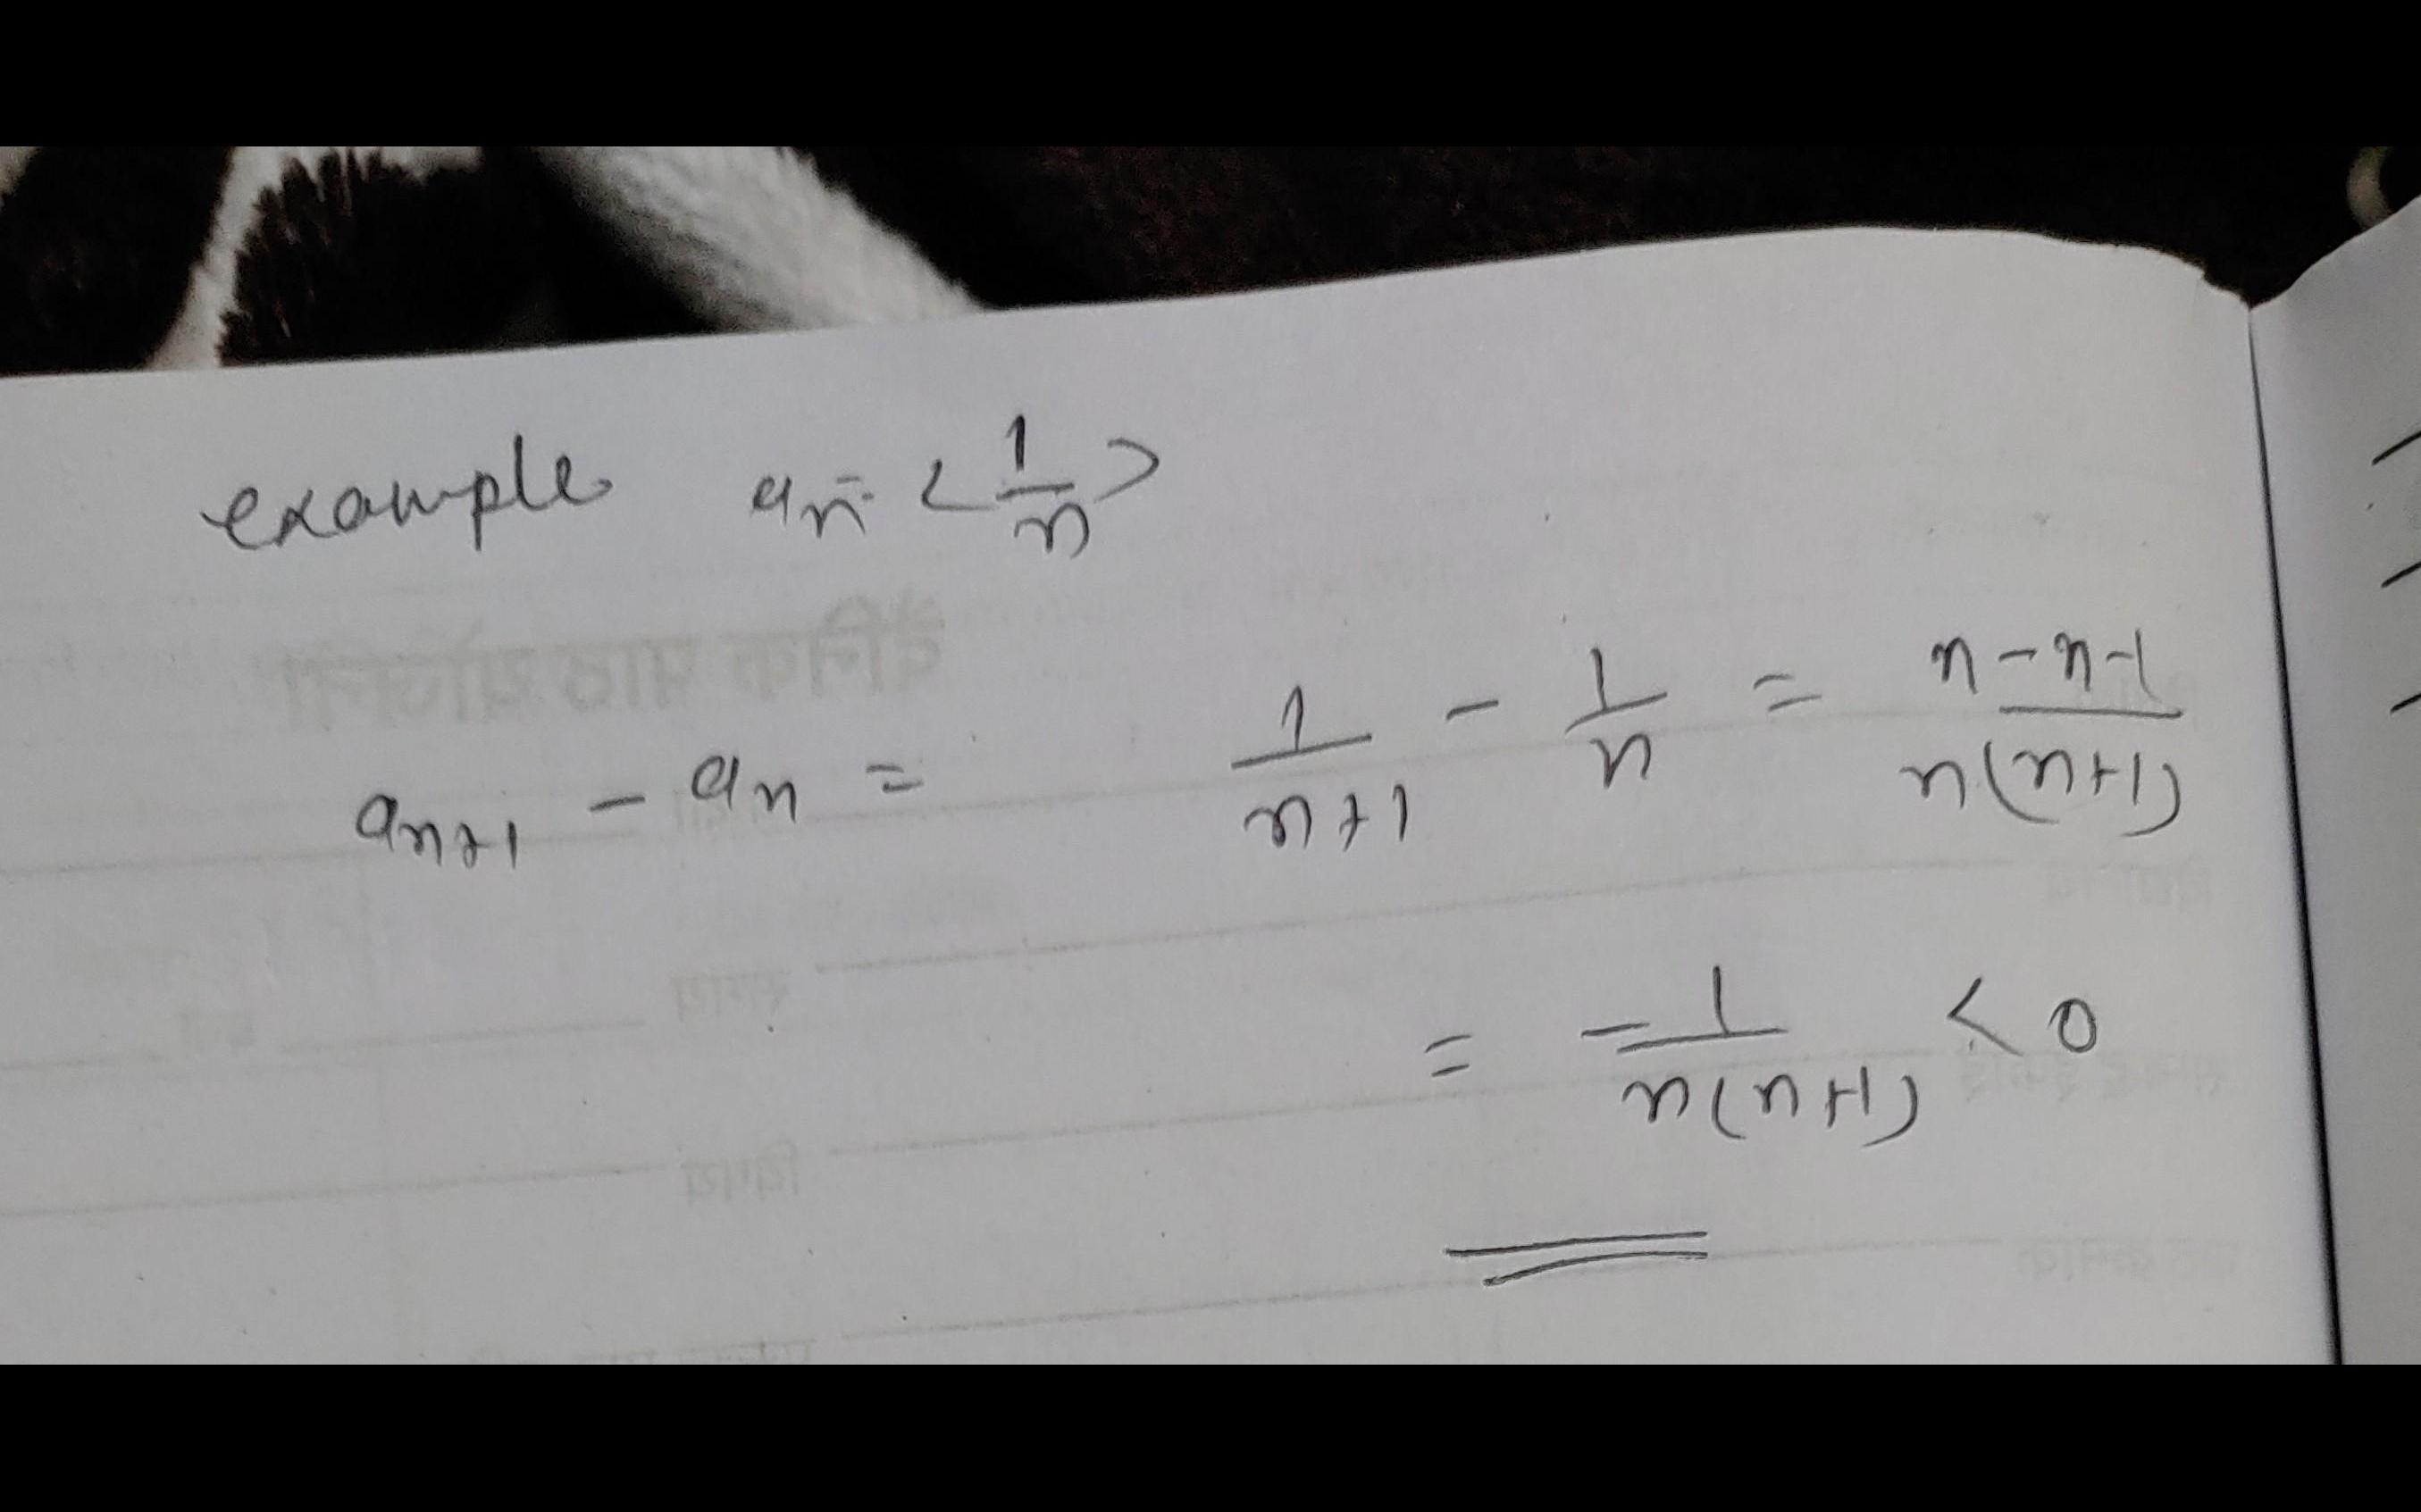 example an = < 1/n >
an+1 - an = 1/n+1 - 1/n = n-n-1/n(n+1)
= -1/n(n+1) < 0
दैनिक पाठ योजना